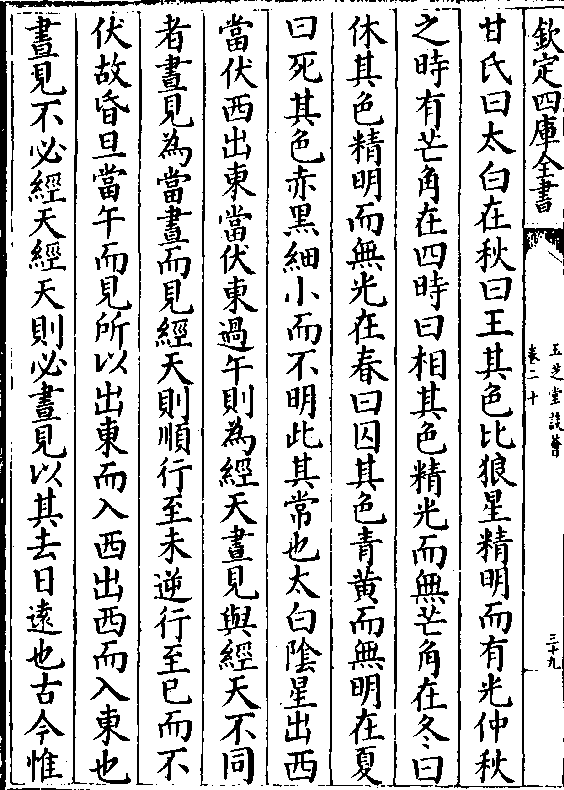 欽定四庫全書
玉芝堂談薈
卷二十
三十九
甘氏曰太白在秋曰王其色比狼星精明而有光仲秋
之時有芒角在四時曰相其色精光而無芒角在冬曰
休其色精明而無光在春曰囚其色青黃而無明在夏
曰死其色赤黑細小而不明此其常也太白陰星出西
當伏西出東當伏東過午則為經天晝見與經天不同
者晝見為當晝而見經天則順行至未逆行至巳而不
伏故昏旦當午而見所以出東而入西出西而入東也
晝見不必經天經天則必晝見以其去日遠也古今惟